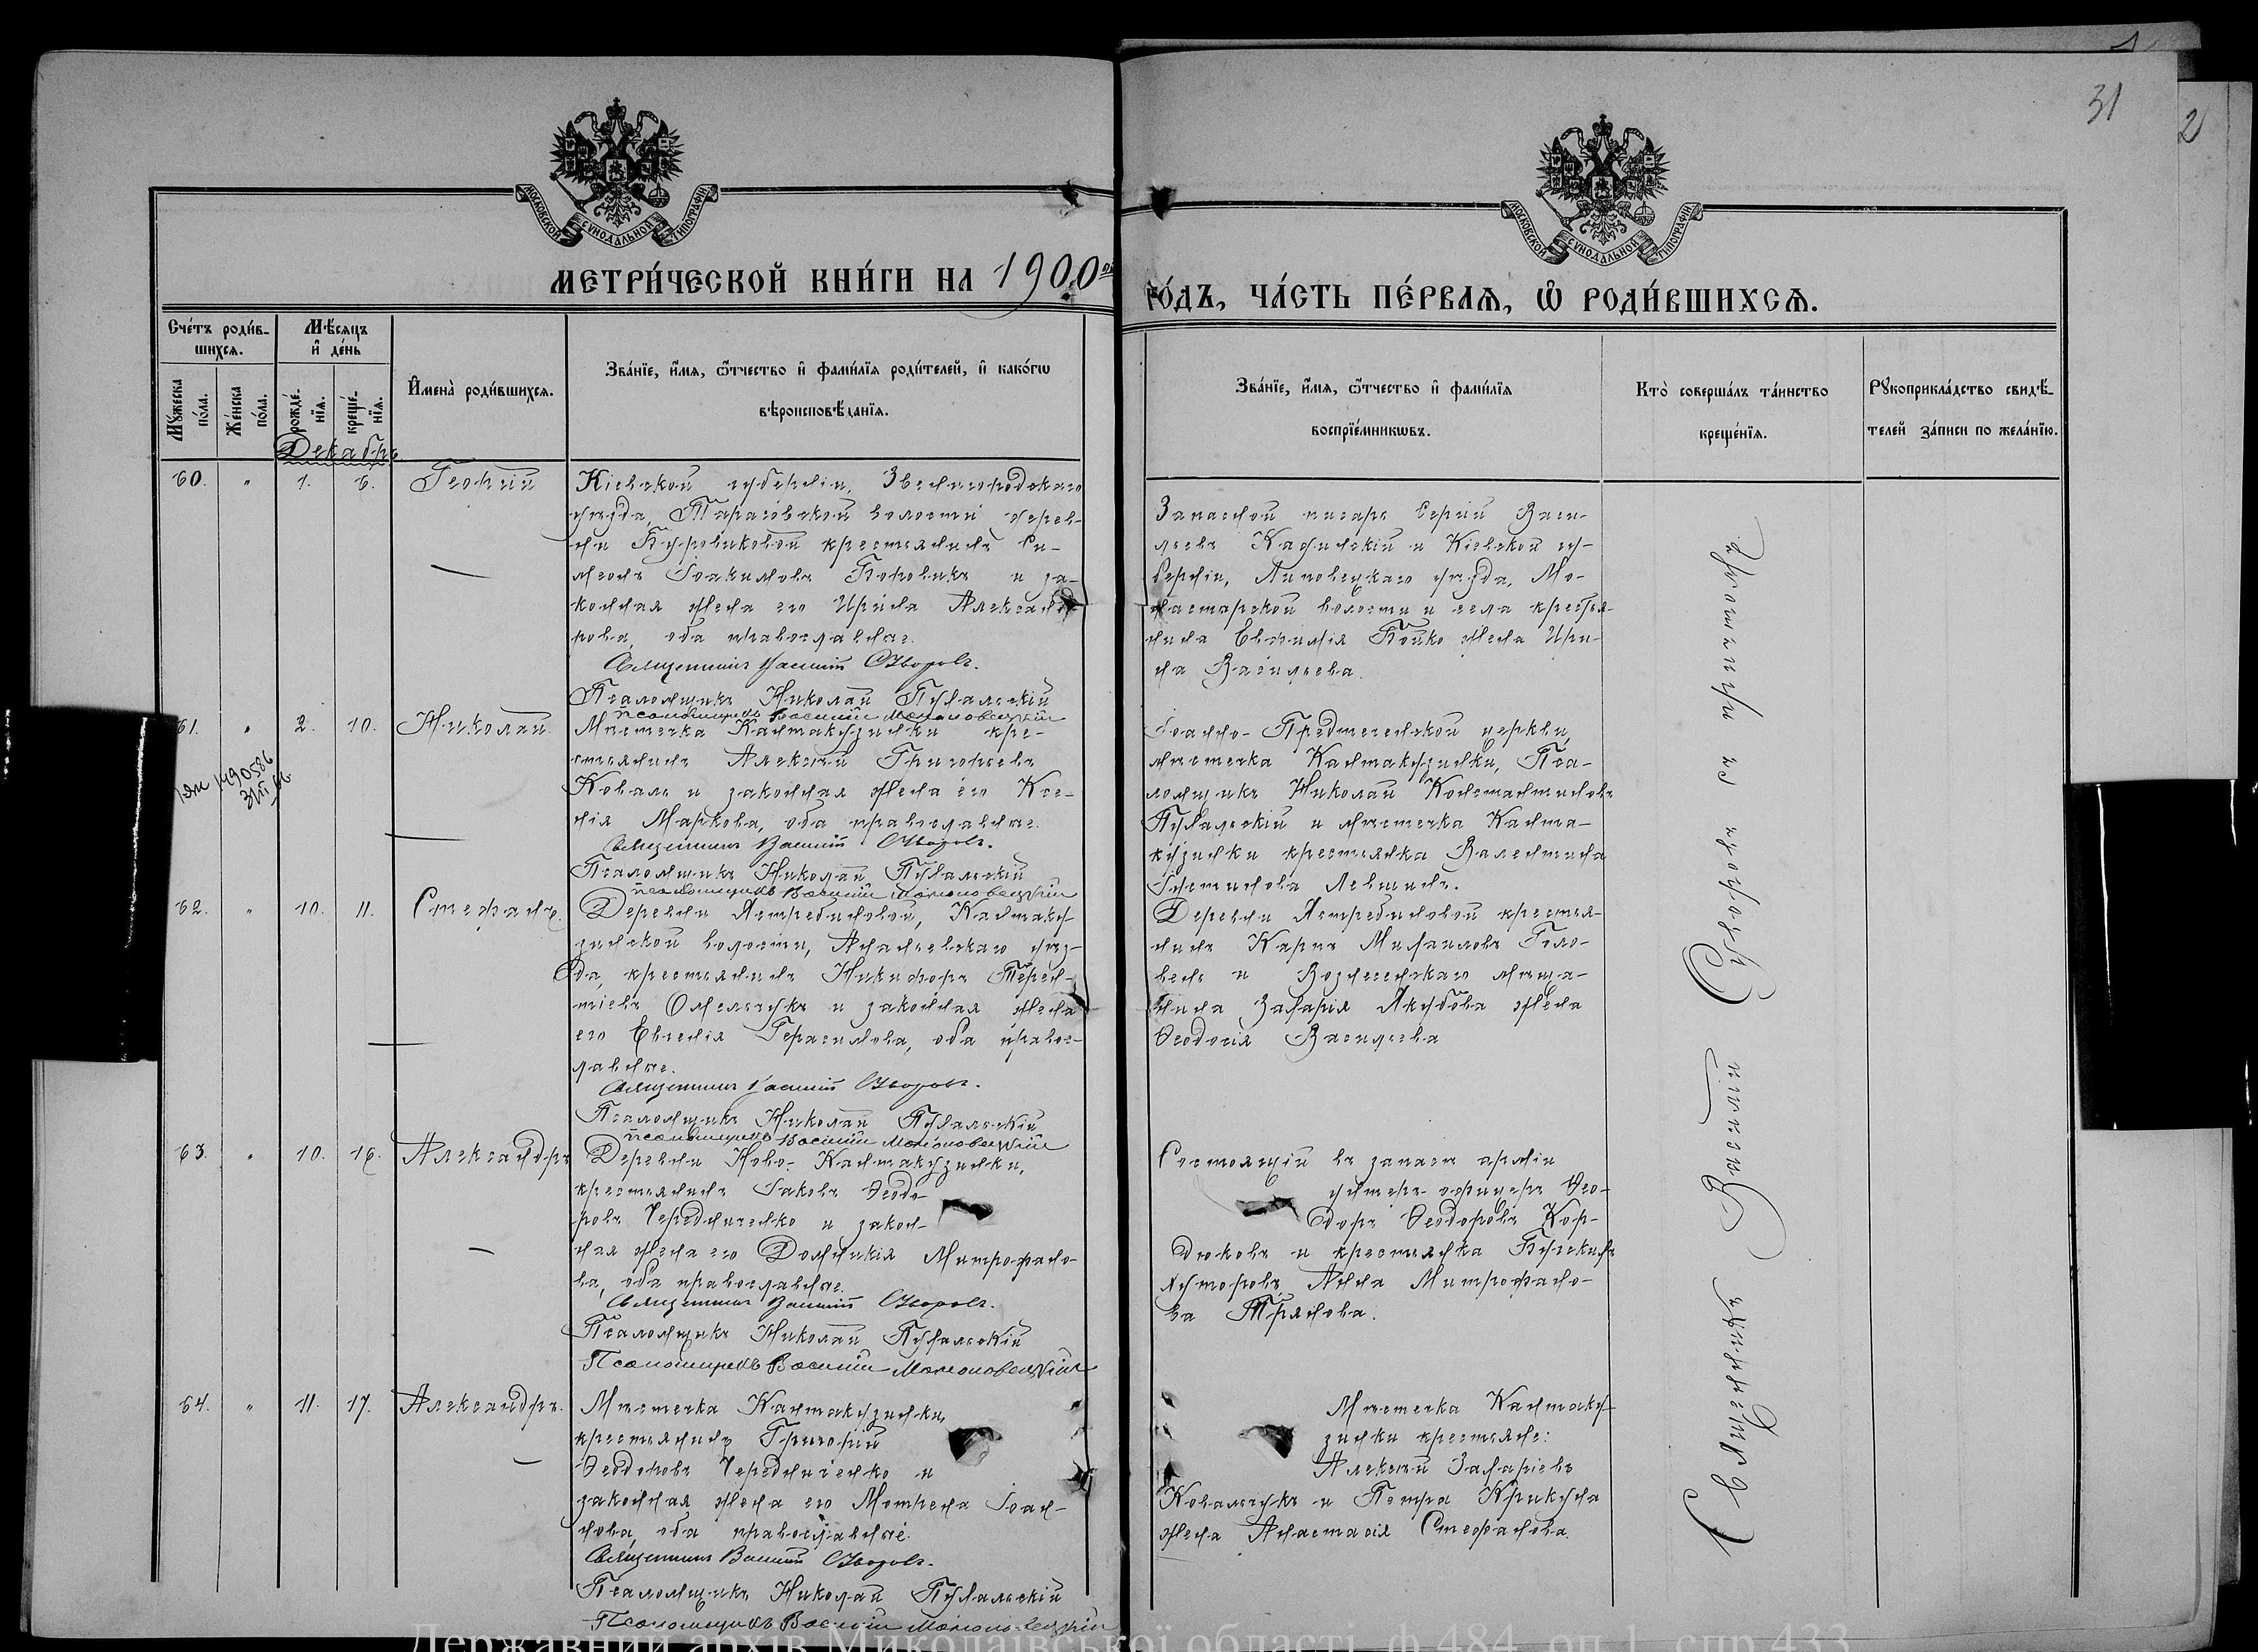 31
2
МОСКОВСКОЙ СѴНОДАЛЬНОЙ ТИПОГРАФІИ
МОСКОВСКОЙ СѴНОДАЛЬНОЙ ТИПОГРАФІИ
МЕТРИ́ЧЕСКОЙ КНИ́ГИ НА 1900ый
ГО́ДЪ, ЧА́СТЬ ПЕ́РВАѦ, Ѡ҆ РОДИ́ВШИХСѦ.
Сче́тъ роди́в-
шихсѧ.
Мѣ́сѧцъ
и҆ де́нь
И҆мена̀ роди́вшихсѧ.
Зва́нїе, и҆́мѧ, ѻ҆́тчество и҆ фамі́лїѧ роди́телей, и҆ како́гѡ
вѣроисповѣ́данїѧ.
Мꙋ́жеска
по́ла.
Же́нска
по́ла.
рожде́-
нїѧ.
креще́-
нїѧ.
Зва́нїе, и҆́мѧ, ѻ҆́тчество и҆ фамі́лїѧ
воспрїе́мникѡвъ.
Кто̀ соверша́лъ та́инство
креще́нїѧ.
Рꙋкоприкла́дство свидѣ́-
телей за́писи по жела́нїю.
Декабрь
60. " 1. 6. Георгій
Кіевской губерніи, Звенигородскаго
уѣзда, Тарасовской волости дерев-
ни Боровиковой крестьянинъ Си-
меонъ Іоакимовъ Боровикъ и за-
конная жена его Ирина Александ-
рова, оба православные.
Священникъ Василій
Псаломщикъ Николай Пухальскій
псаломщикъ Василій
Запасной писарь Сергій Васи-
льевъ Кафинскій и Кіевской гу-
берніи, Липовецкаго уѣзда, Мо-
настырской волости и села крестья-
нина Евфимія Бойко жена Ири-
на Васильева.
61. " 2. 10. Николай.
Мѣстечка Кантакузинки кре-
стьянинъ Алексѣй Григорьевъ
Коваль и законная жена его Ксе-
нія Маркова, оба православные.
Священникъ Василій
Псаломщикъ Николай Пухальскій
псаломщикъ Василій
Іоанно-Предтеченской церкви,
мѣстечка Кантакузинки, Пса-
ломщикъ Николай Константиновъ
Пухальскій и мѣстечка Канта-
кузинки крестьянка Валентина
Іустинова Левицкъ.
62. " 10. 11. Стефанъ.
Деревни Ястребиновой, Кантаку-
зинской волости, Ананьевскаго уѣз-
да, крестьянинъ Никифоръ Терен-
тіевъ Омельчукъ и законная жена
его Евгенія Герасимова, оба правос-
лавные.
Священникъ Василій
Псаломщикъ Николай Пухальскій
псаломщикъ Василій
Деревни Ястребиновой крестья-
нинъ Карпъ Михаиловъ Голо-
вень и Вознесенскаго мѣща-
нина Захарія Якубова жена
Ѳеодосія Васильева
63. " 10. 16. Александръ
Деревни Ново-Кантакузинки,
крестьянинъ Іаковъ Ѳеодо-
ровъ Чередниченко и закон-
ная жена его Домникія Митрофано-
ва, оба православные.
Священникъ Василій
Псаломщикъ Николай Пухальскій
Псаломщикъ Василій
Состоящій въ запасѣ арміи
унтеръ-офицеръ Ѳео-
доръ Ѳеодоровъ Кор-
дюковъ и крестьянка
хуторовъ Анна Митрофано-
ва Трянова.
64. " 11. 17. Александръ.
Мѣстечка Кантакузинки,
крестьянинъ Григорій
Ѳеодоровъ Чередниченко и
законная жена его Мотрена Іоан-
нова, оба православные.
Священникъ Василій
Псаломщикъ Николай Пухальскій
Псаломщикъ Василій
Мѣстечка Кантаку-
зинки крестьяне:
Алексѣй Захаріевъ
Ковальчукъ и Петра Крикуна
жена Анастасія Стефанова.
Священникъ Василій
Державний архів Миколаївської області, ф.484, оп.1, спр.433